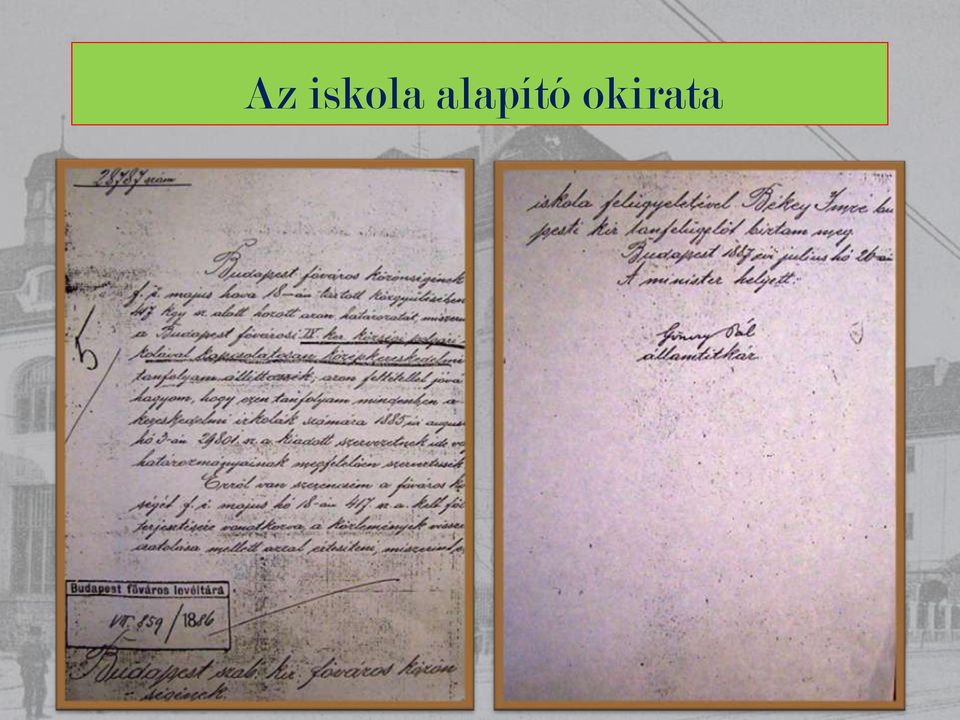 Az iskola alapító okirata
28787 szám
Budapest főváros közönségének
f. é. május hava 18-án tartott közgyülésében
417 kgy sz. alatt hozott azon határozatát, miszerint
a Budapest fővárosi IV. ker. községi polgári
kolával kapcsolatosan középkereskedelmi
tanfolyam állittassék, azon feltétellel jová
hagyom, hogy ezen tanfolyam mindenben a
kereskedelmi iskolák számára 1885 évi august
hó 3-án 29801. sz. a. kiadott szervezetnek ide vo
határozmányainak megfelelően szerveztessék
Erről van szerencsém a főváros kö
ségét f. é. május hó 18-án 417 sz. a. kelt föl
terjesztésére vonatkozva, a közlemények vissza
csatolása mellett azzal értesíteni, miszerint e
5
Budapest főváros levéltára
VII. 859/1886
Budapest szab. kir. főváros közön
ségének.
iskola felügyeletével Békey Imre bu
pesti kir tanfelügyelőt biztam meg.
Budapest 1887 évi julius hó 26-án
A minister helyett:
Gönczy Pál
államtitkár